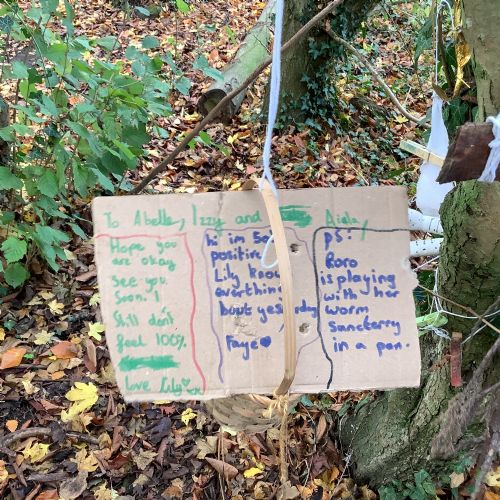 To Abelle, Izzy and Aida,
Hope you
are okay
See you
Soon!
Still don't
feel 100%.
love Lily
hi im So
positive
Lily know
everthing
bout yesterday
Faye
PS:
Roro
is playing
with her
worm
Sancterry
in a pan.